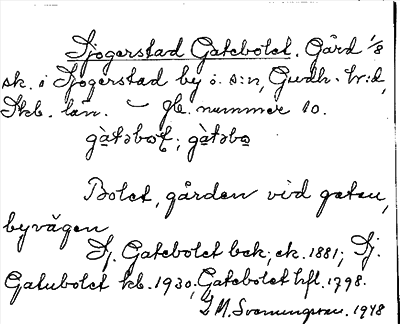 Sjogerstad Gatebolet. Gård 1/8
sk. i Sjogerstad by o. s:n, Gudh. hr:d,
Skb. län. — Jb. nummer 10.
gàtəbω; gàtəbo
Bolet, gården vid gatan,
byvägen
Sj. Gatebolet bek. ek. 1881; Sj.
Gatubolet kb. 1930, Gatebolet hfl. 1798.
1948